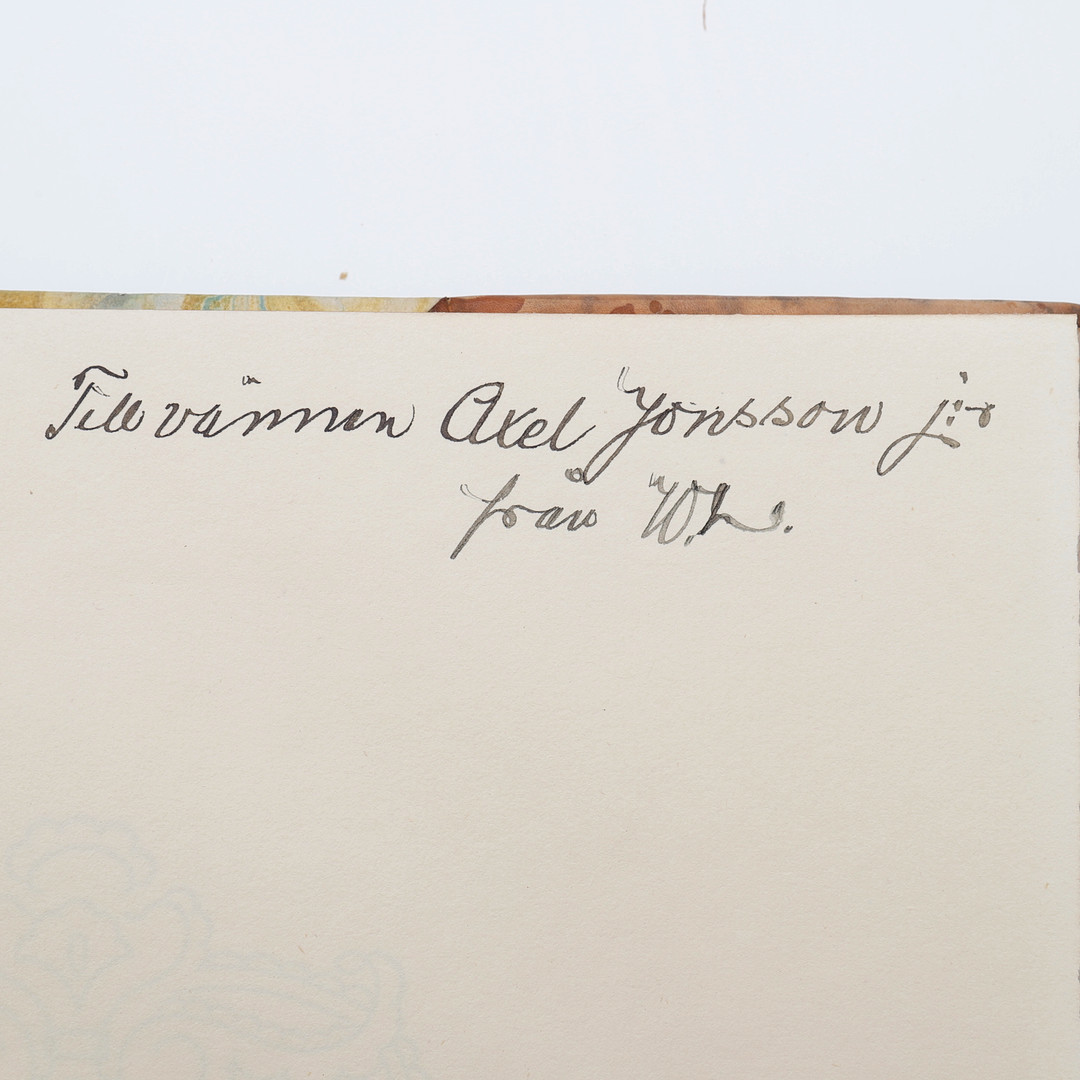 Till vännen Axel Jönsson j:r
från W.L.